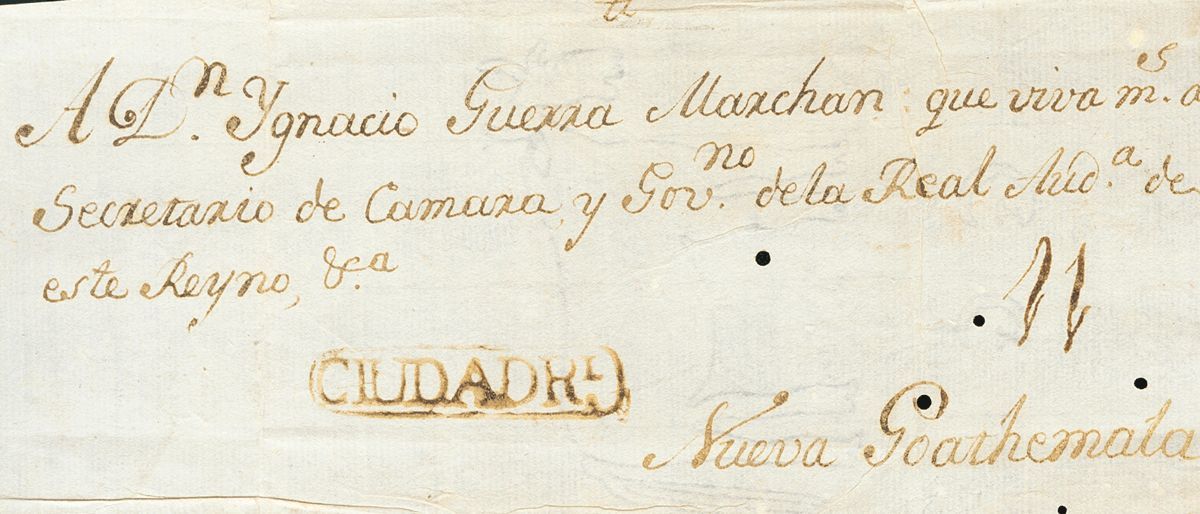 A Dn. Ygnacio Guerra Marchan que viva ms. a
Secretario de Camara, y Govno. dela Real Auda. de
este Reyno, &a.
CIUDADRL.
Nueva Goathemala